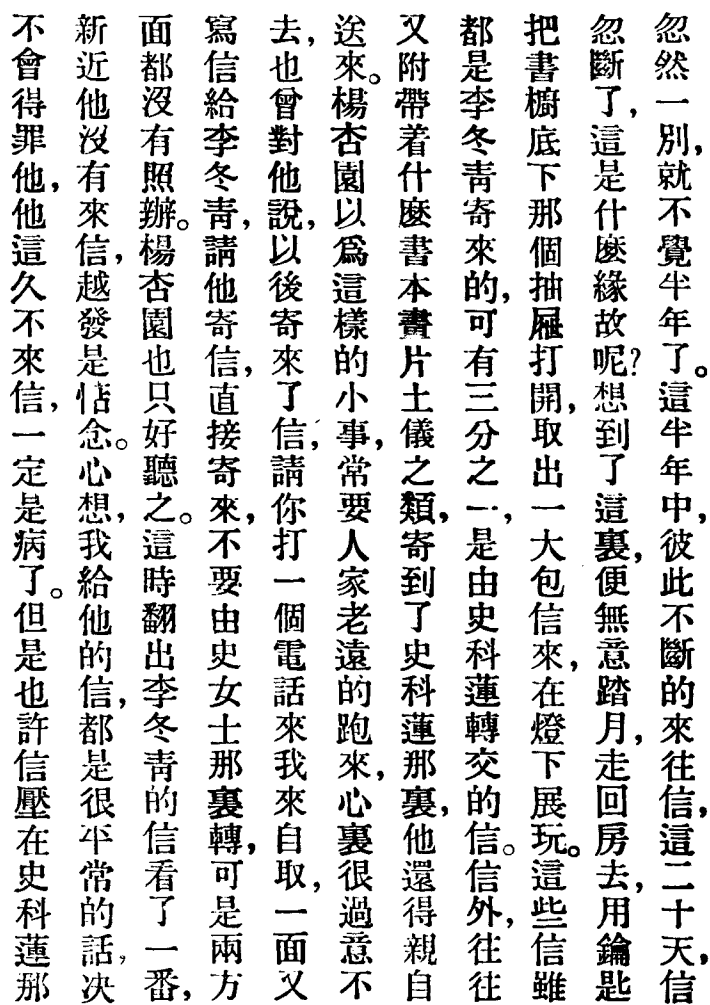 忽然一別，就不覺半年了。這半年中，彼此不斷的來往信，這二十天，信
忽斷了，這是什麽緣故呢？想到了這裏，便無意踏月，走回房去，用鑰匙
把書櫥底下那個抽屜打開，取出一大包信來，在燈下展玩。這些信雖
都是李冬靑寄來的，可有三分之一，是由史科蓮轉交的信。信外，往往
又附帶着什麽書本畫片土儀之類，寄到了史科蓮那裏，他還得親自
送來。楊杏園以爲這樣的小事，常要人家老遠的跑來，心裏很過意不
去，也曾對他說，以後寄來了信，請你打一個電話來我來自取，一面又
寫信給李冬靑，請他寄信，直接寄來，不要由史女士那裏轉，可是兩方
面都沒有照辦。楊杏園也只好聽之。這時翻出李冬靑的信看了一番，
新近他沒有來信，越發是惦念。心想，我給他的信，都是很平常的話，决
不會得罪他，他這久不來信，一定是病了。但是也許信壓在史科蓮那